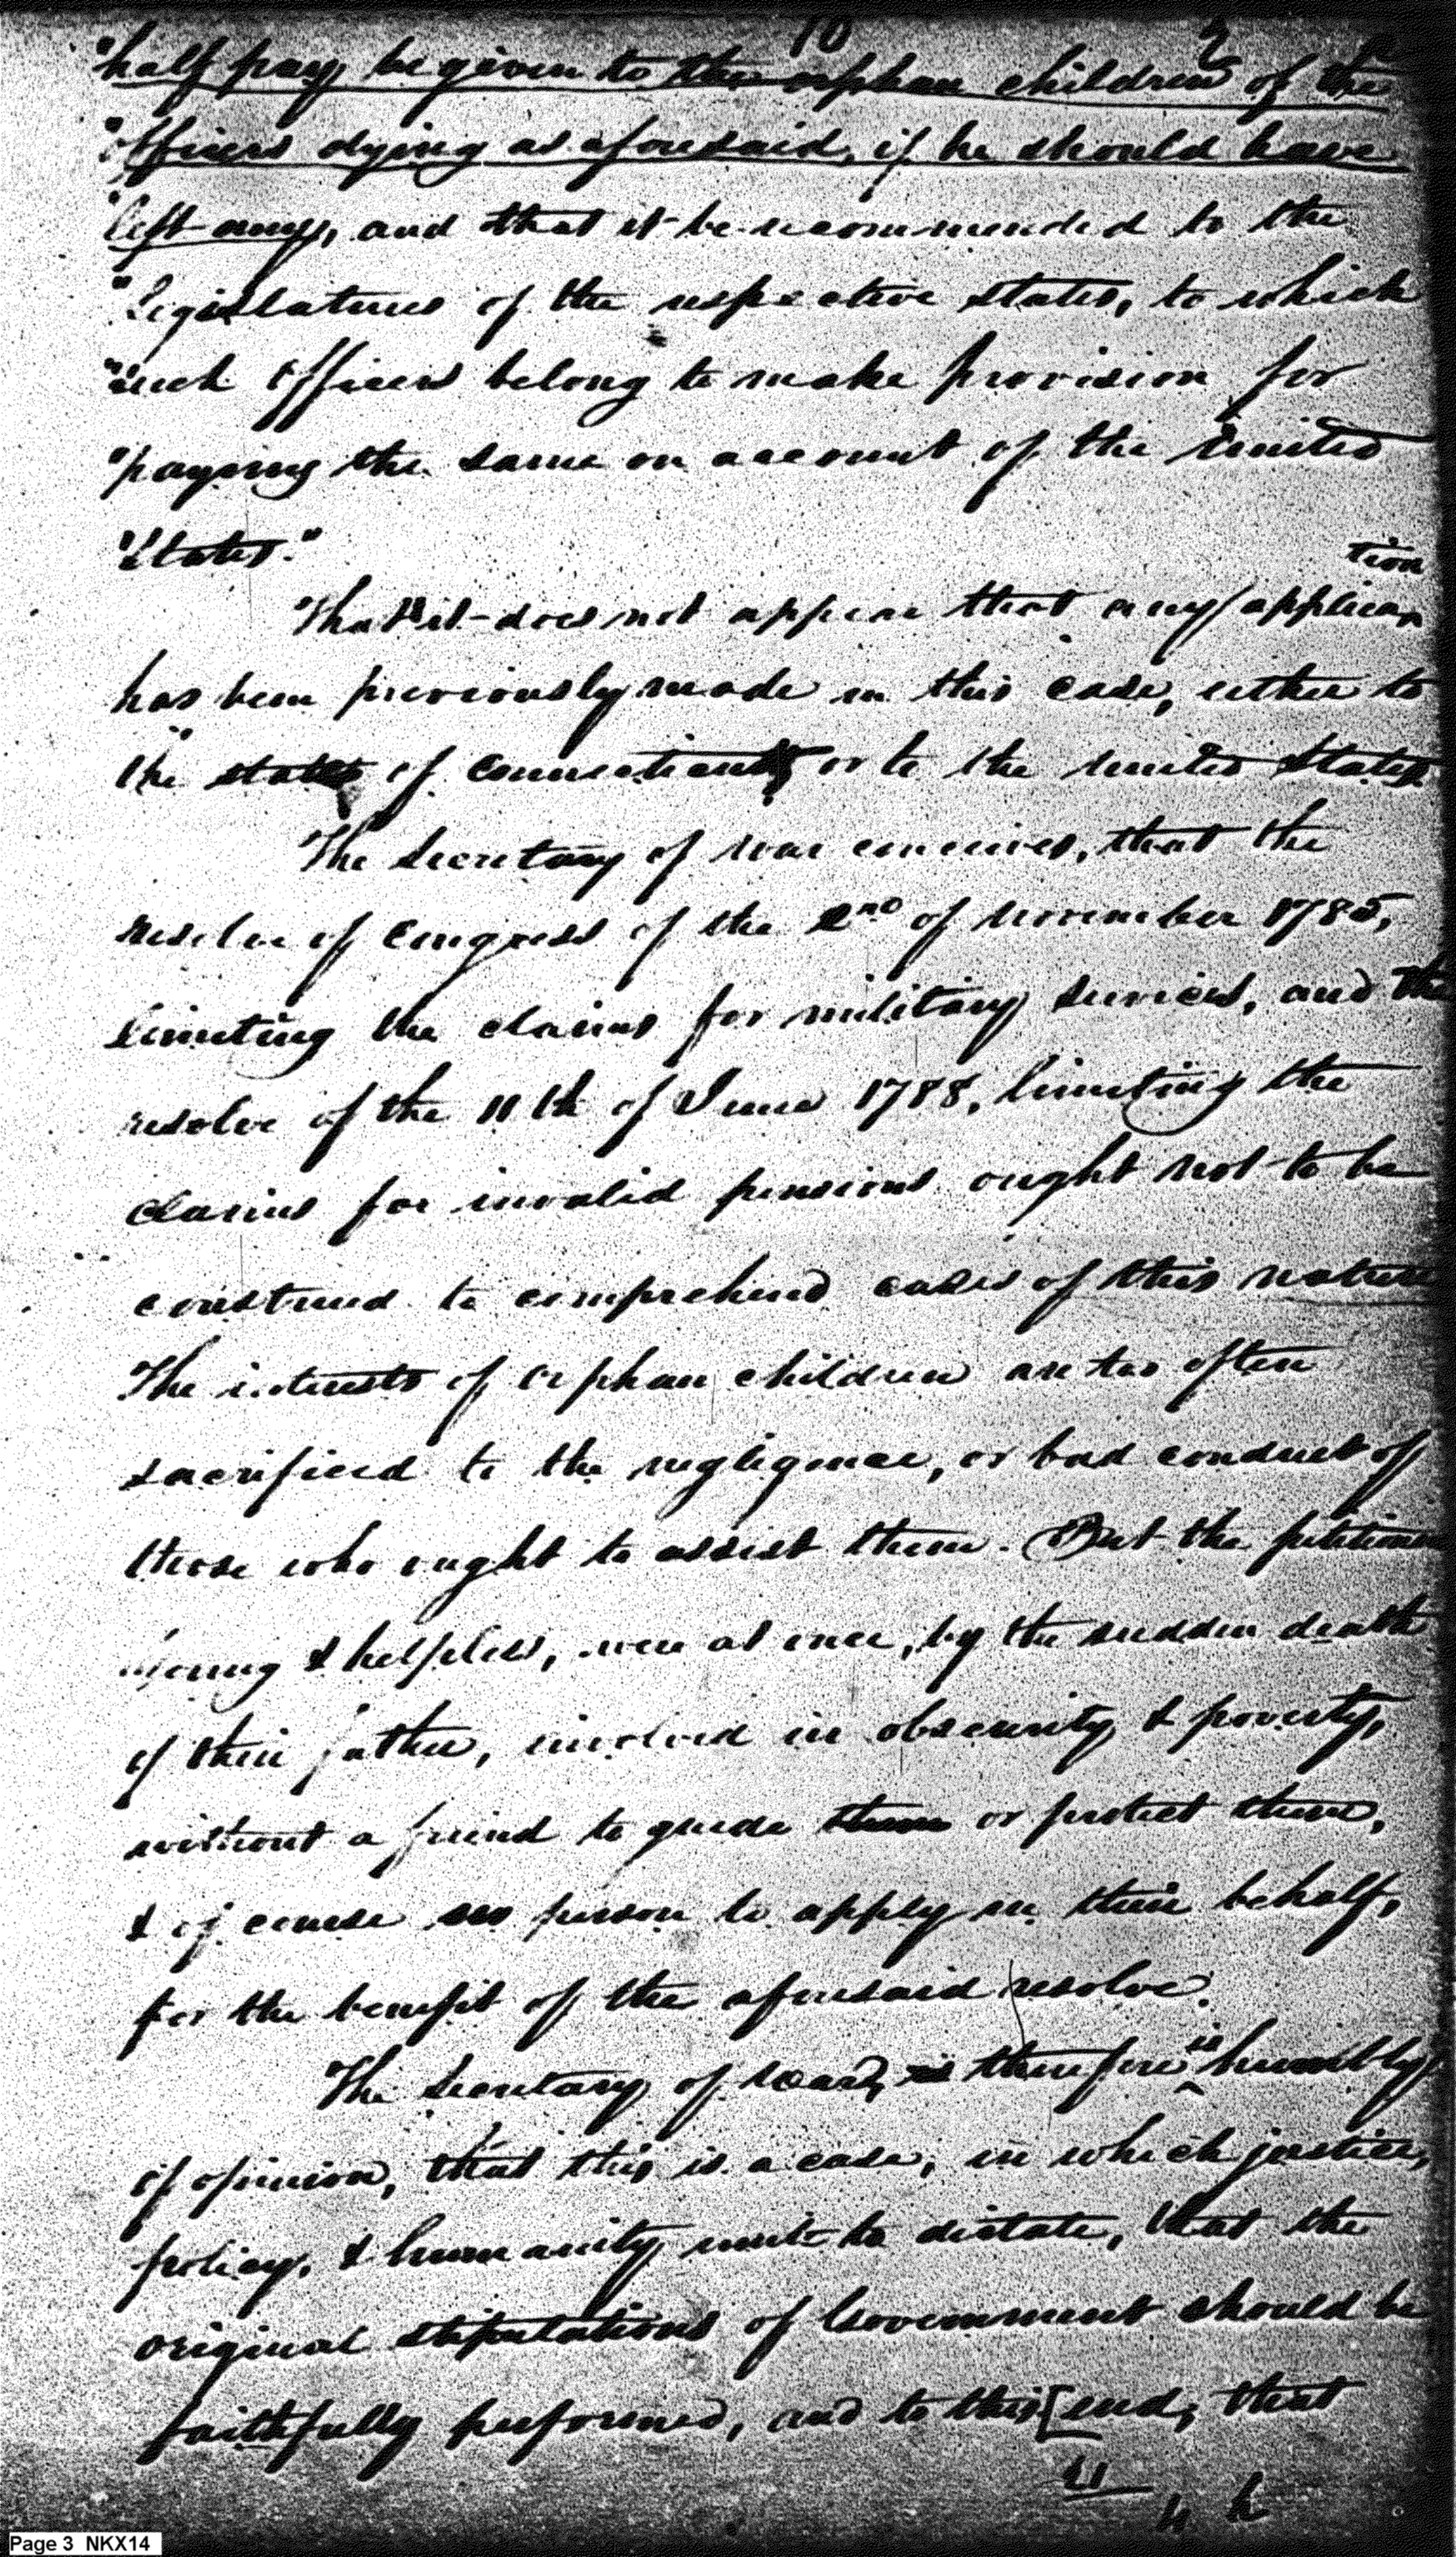 10 3
"half pay be given to the orphan children of the
"officers dying as aforesaid, if he should have
"left any, and that it be recommended to the
"Legislatures of the respective states, to which
"such Officers belong to make provision for
"paying the same on account of the United
"States."
tion
That it does not appear that any applica
has been previously made in this case, either to
the state of Connecticut, or to the United States.
The Secretary of war conceives, that the
resolve of Congress of the 2nd of November 1785,
limiting the claims for military services, and the
resolve of the 11th of June 1788, limiting the
claims for invalid pensions ought not to be
construed to comprehend cases of this nature
The interests of orphan children are too often
sacrificed to the negligence, or bad conduct of
those who ought to assist them. But the petitioners
young & helpless, were at once, by the sudden death
of their father, involved in obscurity & poverty,
without a friend to guide them or protect them,
& of course no person to apply in their behalf,
for the benefit of the aforesaid resolve.
The Secretary of war, is therefore is humbly
of opinion, that this is a case, in which justice,
policy, & humanity unite to dictate, that the
original stipulations of Government should be
faithfully performed, and to this [end, that
11
h
Page 3 NKX14